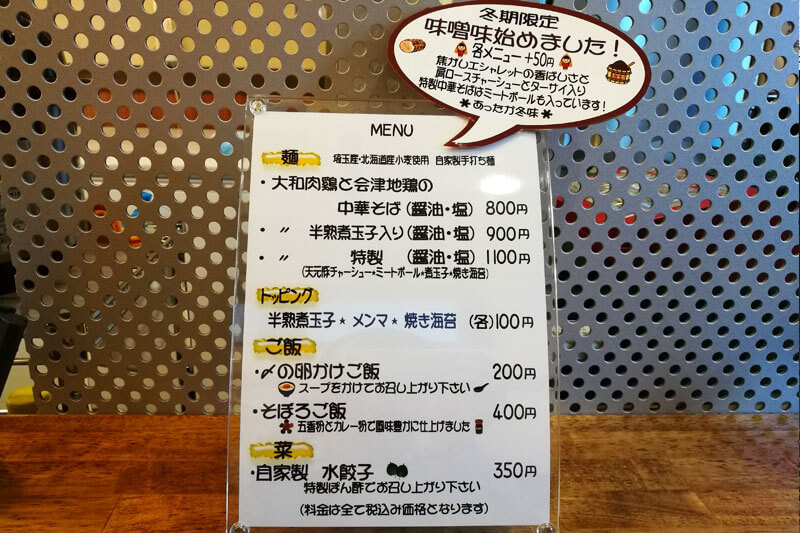 冬期限定
味噌味始めました！
各メニュー+50円
焦がしエシャレットの香ばしさと
肩ロースチャーシューとターサイ入り
特製中華そばはミートボールも入っています！
＊あったか冬味＊
MENU
麺 埼玉産・北海道産小麦使用 自家製手打ち麺
・大和肉鶏と会津地鶏の
中華そば（醤油・塩） 800円
・〃 半熟煮玉子入り（醤油・塩） 900円
・〃 特製 （醤油・塩） 1100円
（天元豚チャーシュー★ミートボール★煮玉子★焼き海苔）
トッピング
半熟煮玉子★メンマ★焼き海苔 （各）100円
ご飯
・〆の卵かけご飯 200円
スープをかけてお召し上がり下さい
・そぼろご飯 400円
五香粉とカレー粉で風味豊かに仕上げました
菜
・自家製 水餃子 350円
特製ぽん酢でお召し上がり下さい
（料金は全て税込み価格となります）